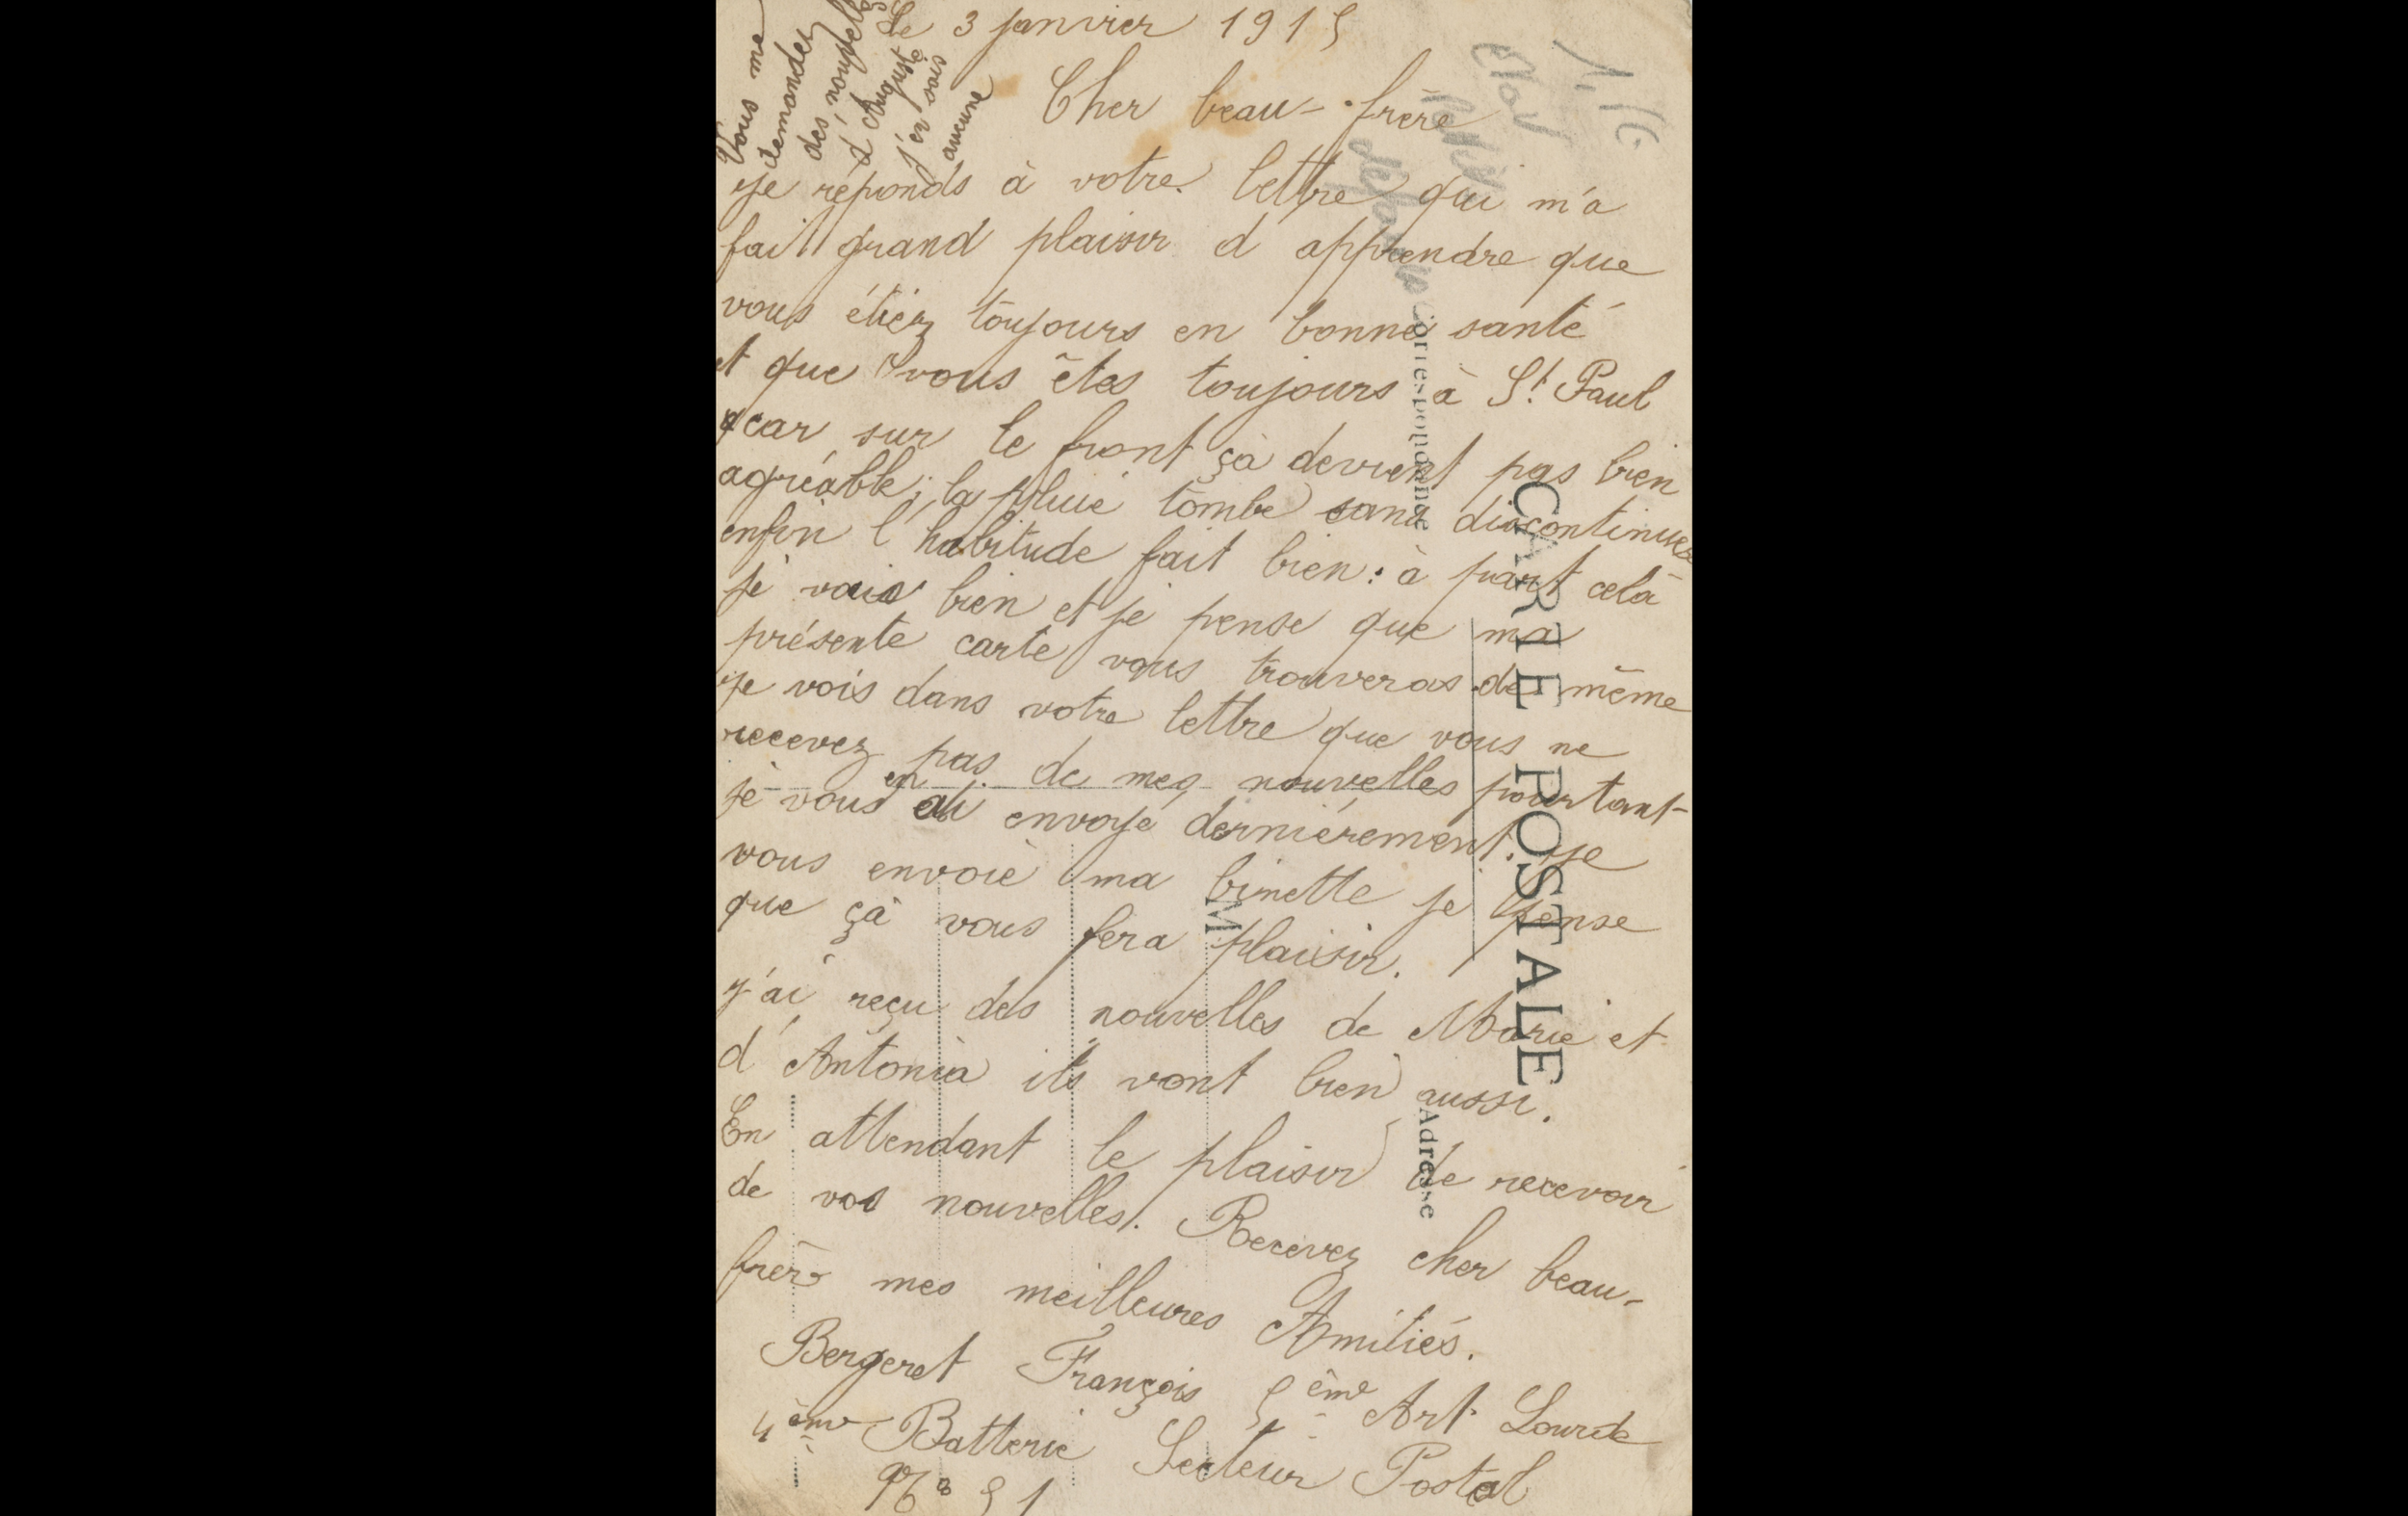 Le 3 janvier 1915
Vous me
demandez
des nouvelles
d'Auguste
j'en sais
aucune
Cher beau-frère
je réponds à votre lettre qui m'a
fait grand plaisir d apprendre que
vous étiez toujours en bonne santé
et que vous êtes toujours à St Paul
car sur le front çà devient pas bien
agréable; la pluie tombe sans discontinuer
enfin l'habitude fait bien: à part celà
je vais bien et je pense que ma
présente carte vous trouveras de même
je vois dans votre lettre que vous ne
recevez pas de mes nouvelles pourtant
je vous en ai envoyé dernièrement. je
vous envoie ma binette je pense
que çà vous fera plaisir.
j'ai reçu des nouvelles de Marie et
d'Antonia ils vont bien aussi.
En attendant le plaisir de recevoir
de vos nouvelles. Recevez cher beau-
frère mes meilleures Amitiés.
Bergeret François 5ème Art Lourde
4ème Batterie Secteur Postal
No 51
CARTE POSTALE
Correspondance
Adresse
M